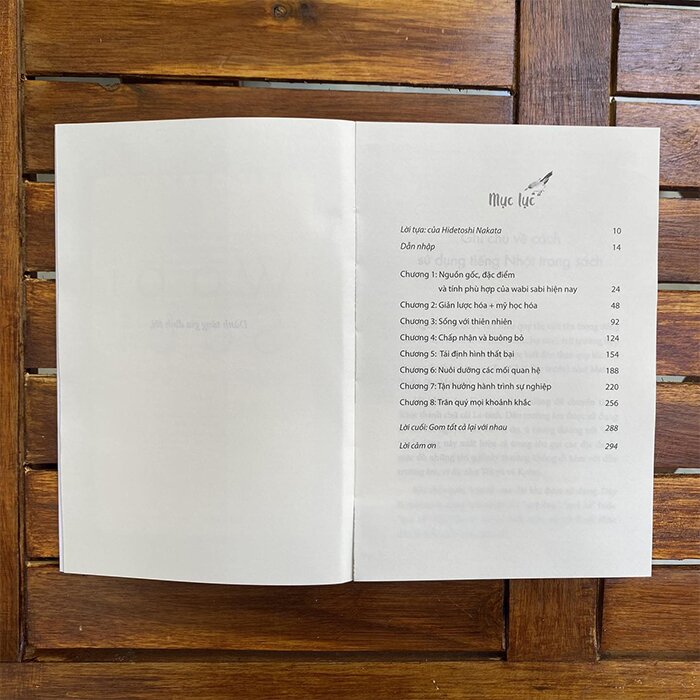 Mục lục
Lời tựa: của Hidetoshi Nakata 10
Dẫn nhập 14
Chương 1: Nguồn gốc, đặc điểm
và tính phù hợp của wabi sabi hiện nay 24
Chương 2: Giản lược hóa + mỹ học hóa 48
Chương 3: Sống với thiên nhiên 92
Chương 4: Chấp nhận và buông bỏ 124
Chương 5: Tái định hình thất bại 154
Chương 6: Nuôi dưỡng các mối quan hệ 188
Chương 7: Tận hưởng hành trình sự nghiệp 220
Chương 8: Trân quý mọi khoảnh khắc 256
Lời cuối: Gom tất cả lại với nhau 288
Lời cảm ơn 294